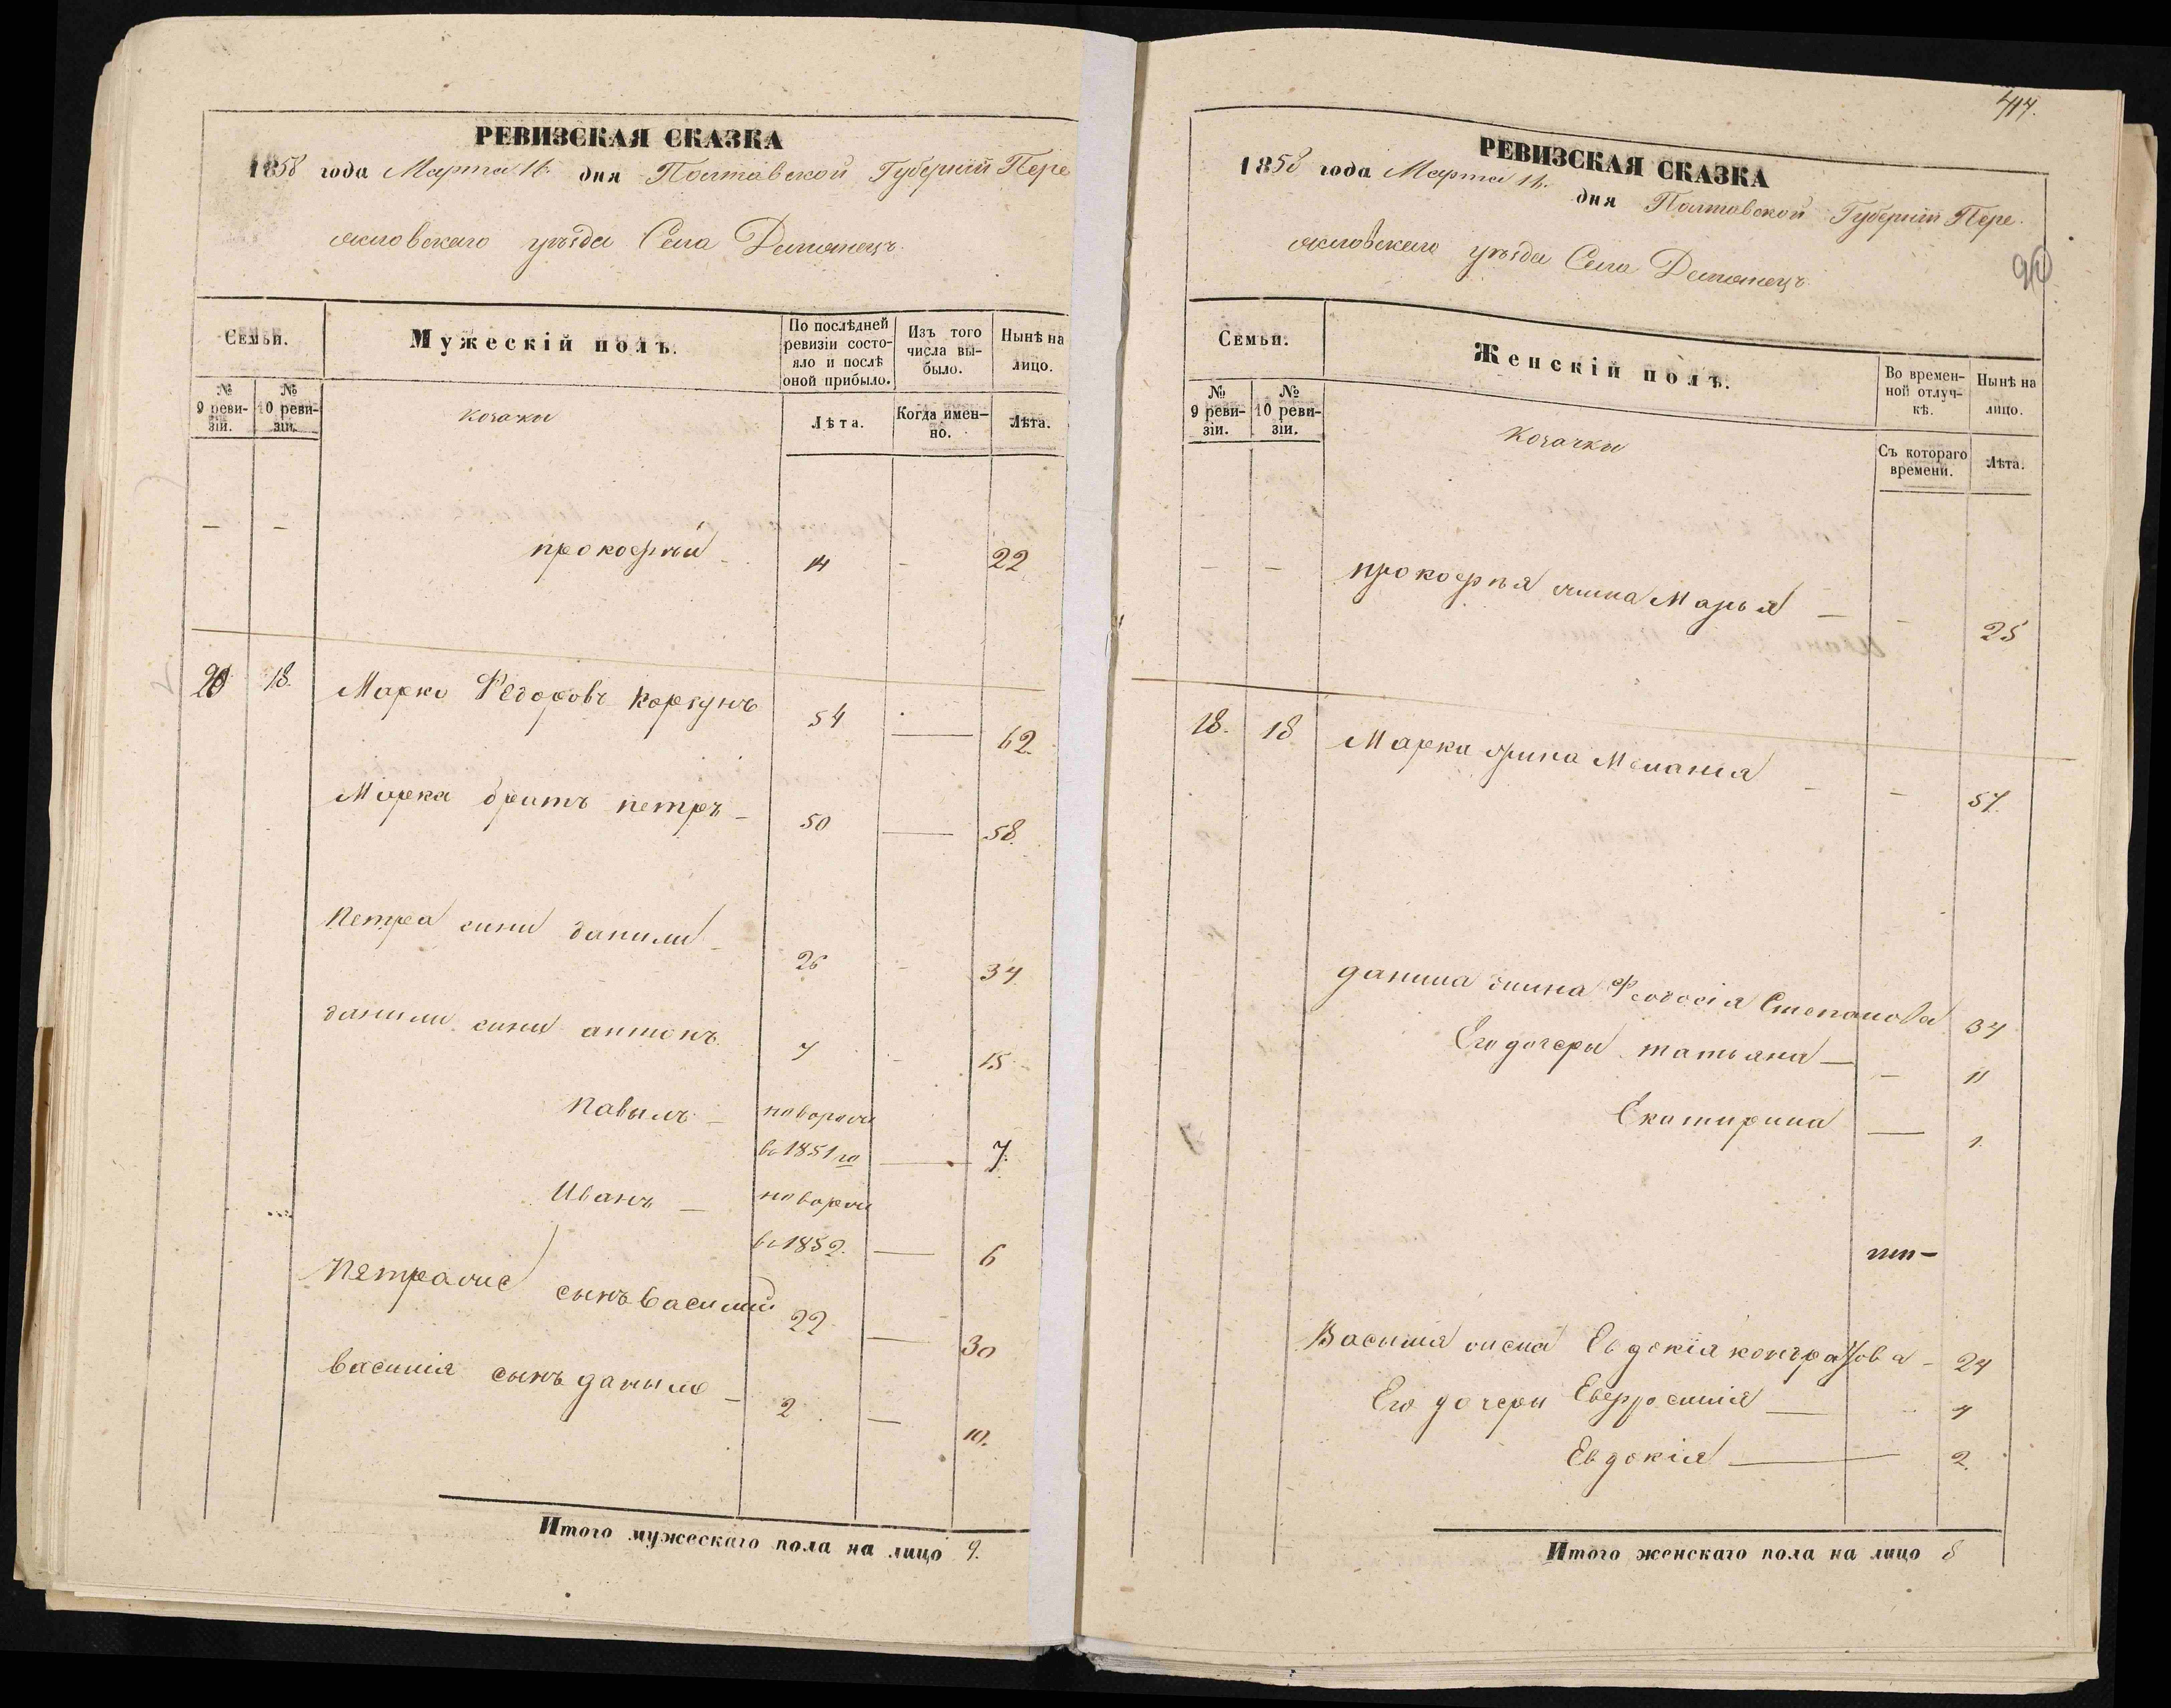 РЕВИЗСКАЯ СКАЗКА
1858 года Марта дня Полтавской Губернiи Пере
яславскаго уѣзда Села Демянецъ
Семьи.
Мужескiй полъ.
По послѣдней ревизiи состояло и послѣ оной прибыло.
Изъ того числа выбыло.
Нынѣ на лицо.
№ 9 ревизiи.
№ 10 ревизiи.
козаки
Лѣта.
Когда именно.
Лѣта.
— — прокофiй — 14 — 22
20 18. Марко Федоровъ Коргунъ 54 — 62.
Марка братъ петръ — 50 — 58.
Петра сини данили — 26 — 34
данили сини антонъ 7 — 15
Павылъ — новорож
въ 1851 го — 7.
Иванъ — новорож
въ 1852. — 6
Петра сынъ Василiй 22 — 30
Василiя сынъ даныло — 2 — 10.
Итого мужескаго пола на лицо 9.
417.
РЕВИЗСКАЯ СКАЗКА
1858 года Марта дня Полтавской Губернiи Пере
яславскаго уѣзда Села Демянецъ
Семьи.
Женскiй полъ.
Во временной отлучкѣ.
Нынѣ на лицо.
№ 9 ревизiи.
№ 10 ревизiи.
козачки
Съ котораго времени.
Лѣта.
— — прокофья жина Марья — — 25
18. 18 Марка жина Меланiя — — 57.
данила жина Феодосiя Степанова 34
Его дочери татьяна — — 11
Екатирина — 1.
Василiя Евдокiя кондратова — 24
Его дочери Евфросинiя — 4
Евдокiя — 2.
Итого женскаго пола на лицо 8